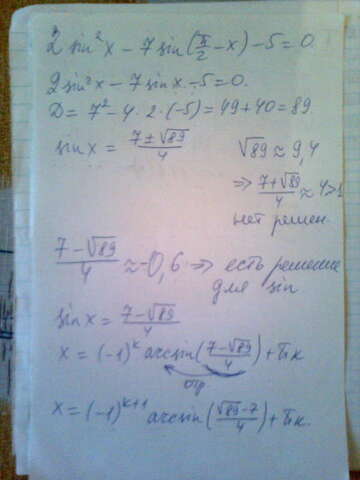 2 sin²x − 7 sin(π/2 − x) − 5 = 0
2 sin²x − 7 sin x − 5 = 0.
D = 7² − 4 · 2 · (−5) = 49 + 40 = 89
sin x = (7 ± √89)/4
√89 ≈ 9,4
⇒ (7 + √89)/4 ≈ 4 > 1
нет решен
(7 − √89)/4 ≈ −0,6 ⇒ есть решение
для sin
sin x = (7 − √89)/4
x = (−1)^k arcsin((7 − √89)/4) + πк
отр
x = (−1)^(k+1) arcsin((√89 − 7)/4) + πк.